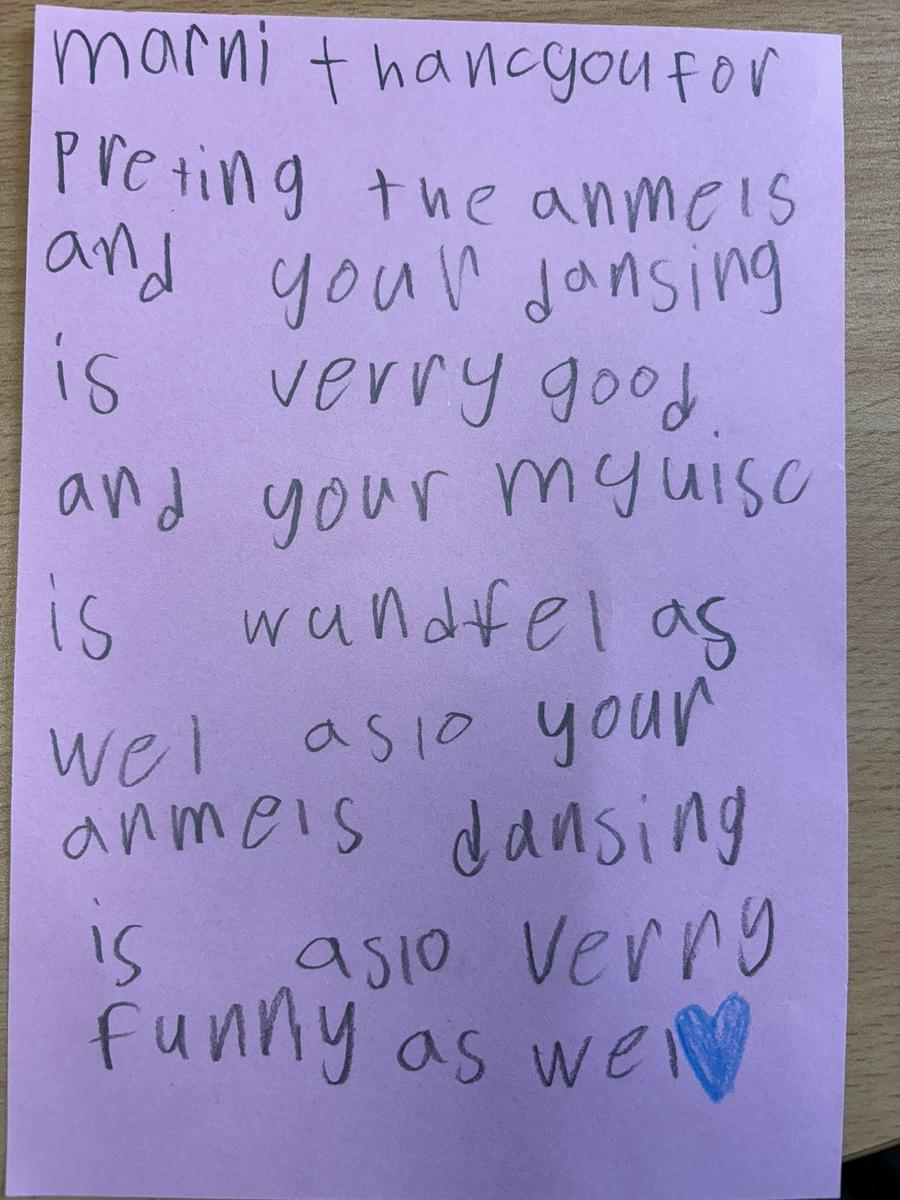 marni thancyou for
Preting the anmels
and your dansing
is verry good
and your myuisc
is wundfel as
wel aslo your
anmels dansing
is aslo verry
funny as wel